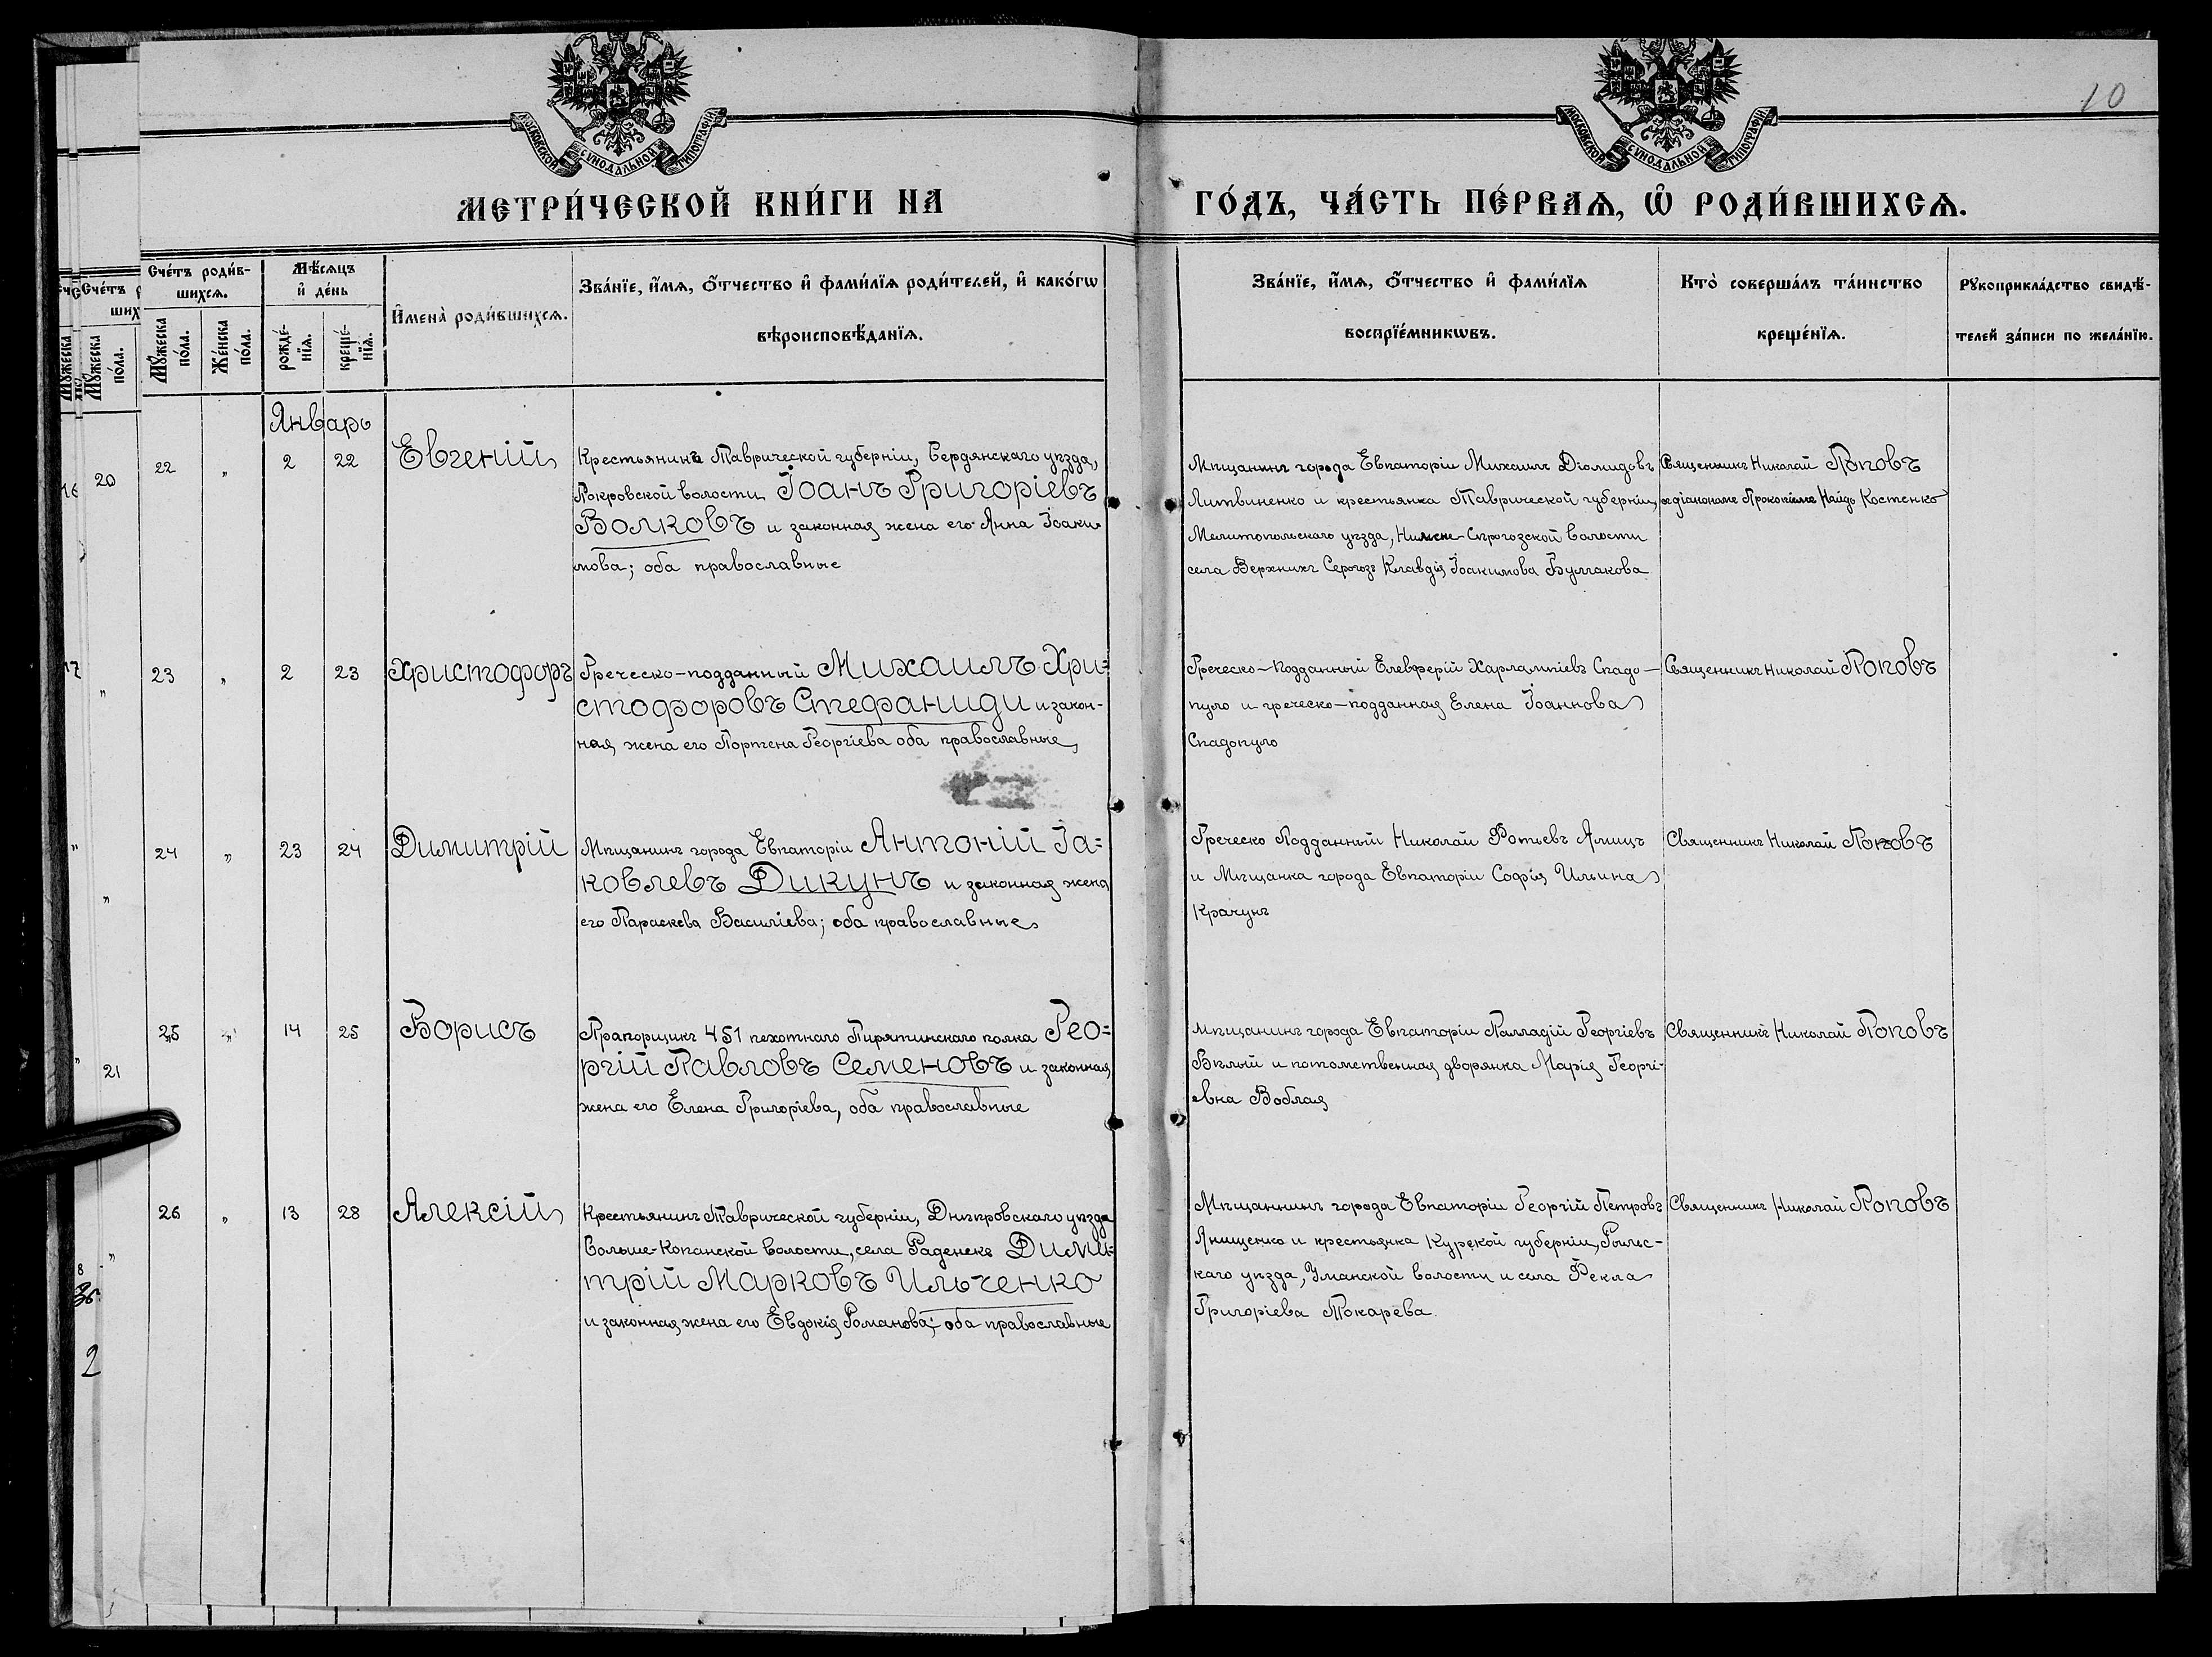 МОСКОВСКОЙ СѴНОДАЛЬНОЙ ТИПОГРАФІИ
МОСКОВСКОЙ СѴНОДАЛЬНОЙ ТИПОГРАФІИ
10
МЕТРИ́ЧЕСКОЙ КНИ́ГИ НА
ГО́ДЪ, ЧА́СТЬ ПЕ́РВАѦ, Ѽ РОДИ́ВШИХСѦ.
Сче́тъ роди́в-
шихсѧ.
Мꙋ́жеска
по́ла.
Же́нска
по́ла.
Мѣ́сѧцъ
и҆ де́нь
рожде́-
нїѧ.
креще́-
нїѧ.
И҆мена̀ роди́вшихсѧ.
Зва́нїе, и҆́мѧ, ѻ҆́тчество и҆ фами́лїѧ роди́телей, и҆ како́гѡ
вѣроисповѣ́данїѧ.
Зва́нїе, и҆́мѧ, ѻ҆́тчество и҆ фами́лїѧ
воспрїе́мникѡвъ.
Кто̀ соверша́лъ та́инство
креще́нїѧ.
Рꙋкоприкла́дство свидѣ́-
телей за́писи по жела́нїю.
Январь
22 „ 2 22 Евгеній
Крестьянинъ Таврической губерніи, Бердянскаго уѣзда,
Покровской волости Іоанъ Григоріевъ
Волковъ и законная жена его Анна Іоаки-
мова; оба православные
Мѣщанинъ города Евпаторіи Михаилъ Діомидовъ
Литвиненко и крестьянка Таврической губерніи,
Мелитопольскаго уѣзда, Нижне-Сѣрогозской волости
села Верхнихъ Серогозъ Клавдія Іоакимова Булгакова
Священникъ Николай Поповъ
съ діакономъ Прокопіемъ Найдъ Костенко
23 „ 2 23 Христофоръ
Греческо-подданный Михаилъ Хри-
стофоровъ Стефаниди и закон-
ная жена его Портена Георгіева оба православные
Греческо-подданный Елевферій Харлампіевъ Спадо-
пуло и греческо-подданная Елена Іоаннова
Спадопуло
Священникъ Николай Поповъ
24 „ 23 24 Димитрій
Мѣщанинъ города Евпаторіи Антоній Іа-
ковлевъ Дикунъ и законная жена
его Параскева Василіева; оба православные
Греческо Подданный Николай Фотьевъ Алицъ
и Мѣщанка города Евпаторіи Софія Ильина
Крачунъ
Священникъ Николай Поповъ
25 „ 14 25 Борисъ
Прапорщикъ 451 пехотнаго Пирятинскаго полка Гео-
ргій Павловъ Семеновъ и законная
жена его Елена Григоріева, оба православные
мѣщанинъ города Евпаторіи Палладій Георгіевъ
Бѣлый и потомственная дворянка Марія Георгі-
евна Воблая
Священникъ Николай Поповъ
26 „ 13 28 Алексій
Крестьянинъ Таврической губерніи, Днѣпровскаго уѣзда
Больше-Копанской волости, села Раденске Дими-
трій Марковъ Ильченко
и законная жена его Евдокія Романова; оба православные
Мѣщанинъ города Евпаторіи Георгій Петровъ
Янищенко и крестьянка Курской губерніи, Рыльс-
каго уѣзда, Уманской волости и села Фекла
Григоріева Токарева.
Священникъ Николай Поповъ
20
21
2